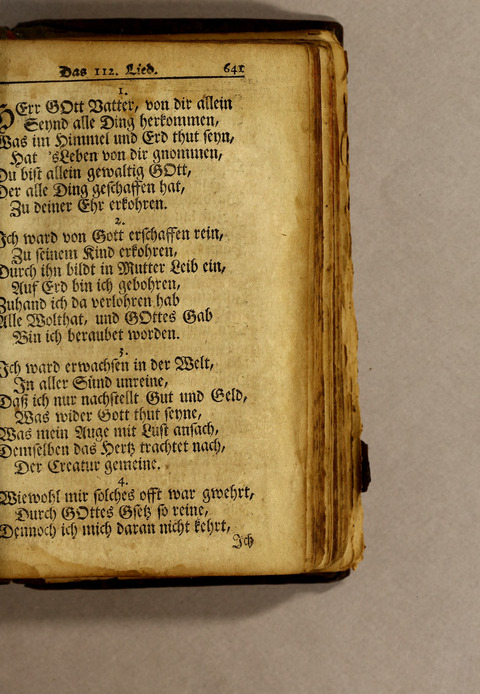 Das 112. Lied. 641
1.
HErr GOtt Vatter, von dir allein
Seynd alle Ding herkommen,
Was im Himmel und Erd thut seyn,
Hat 'sLeben von dir gnommen,
Du bist allein gewaltig GOtt,
Der alle Ding geschaffen hat,
Zu deiner Ehr erkohren.
2.
Ich ward von Gott erschaffen rein,
Zu seinem Kind erkohren,
Durch ihn bildt in Mutter Leib ein,
Auf Erd bin ich gebohren,
Zuhand ich da verlohren hab
Alle Wolthat, und GOttes Gab
Bin ich beraubet worden.
3.
Ich ward erwachsen in der Welt,
In aller Sünd unreine,
Daß ich nur nachstellt Gut und Geld,
Was wider Gott thut seyne,
Was mein Auge mit Lust ansach,
Demselben das Hertz trachtet nach,
Der Creatur gemeine.
4.
Wiewohl mir solches offt war gwehrt,
Durch GOttes Gsetz so reine,
Dennoch ich mich daran nicht kehrt,
Ich